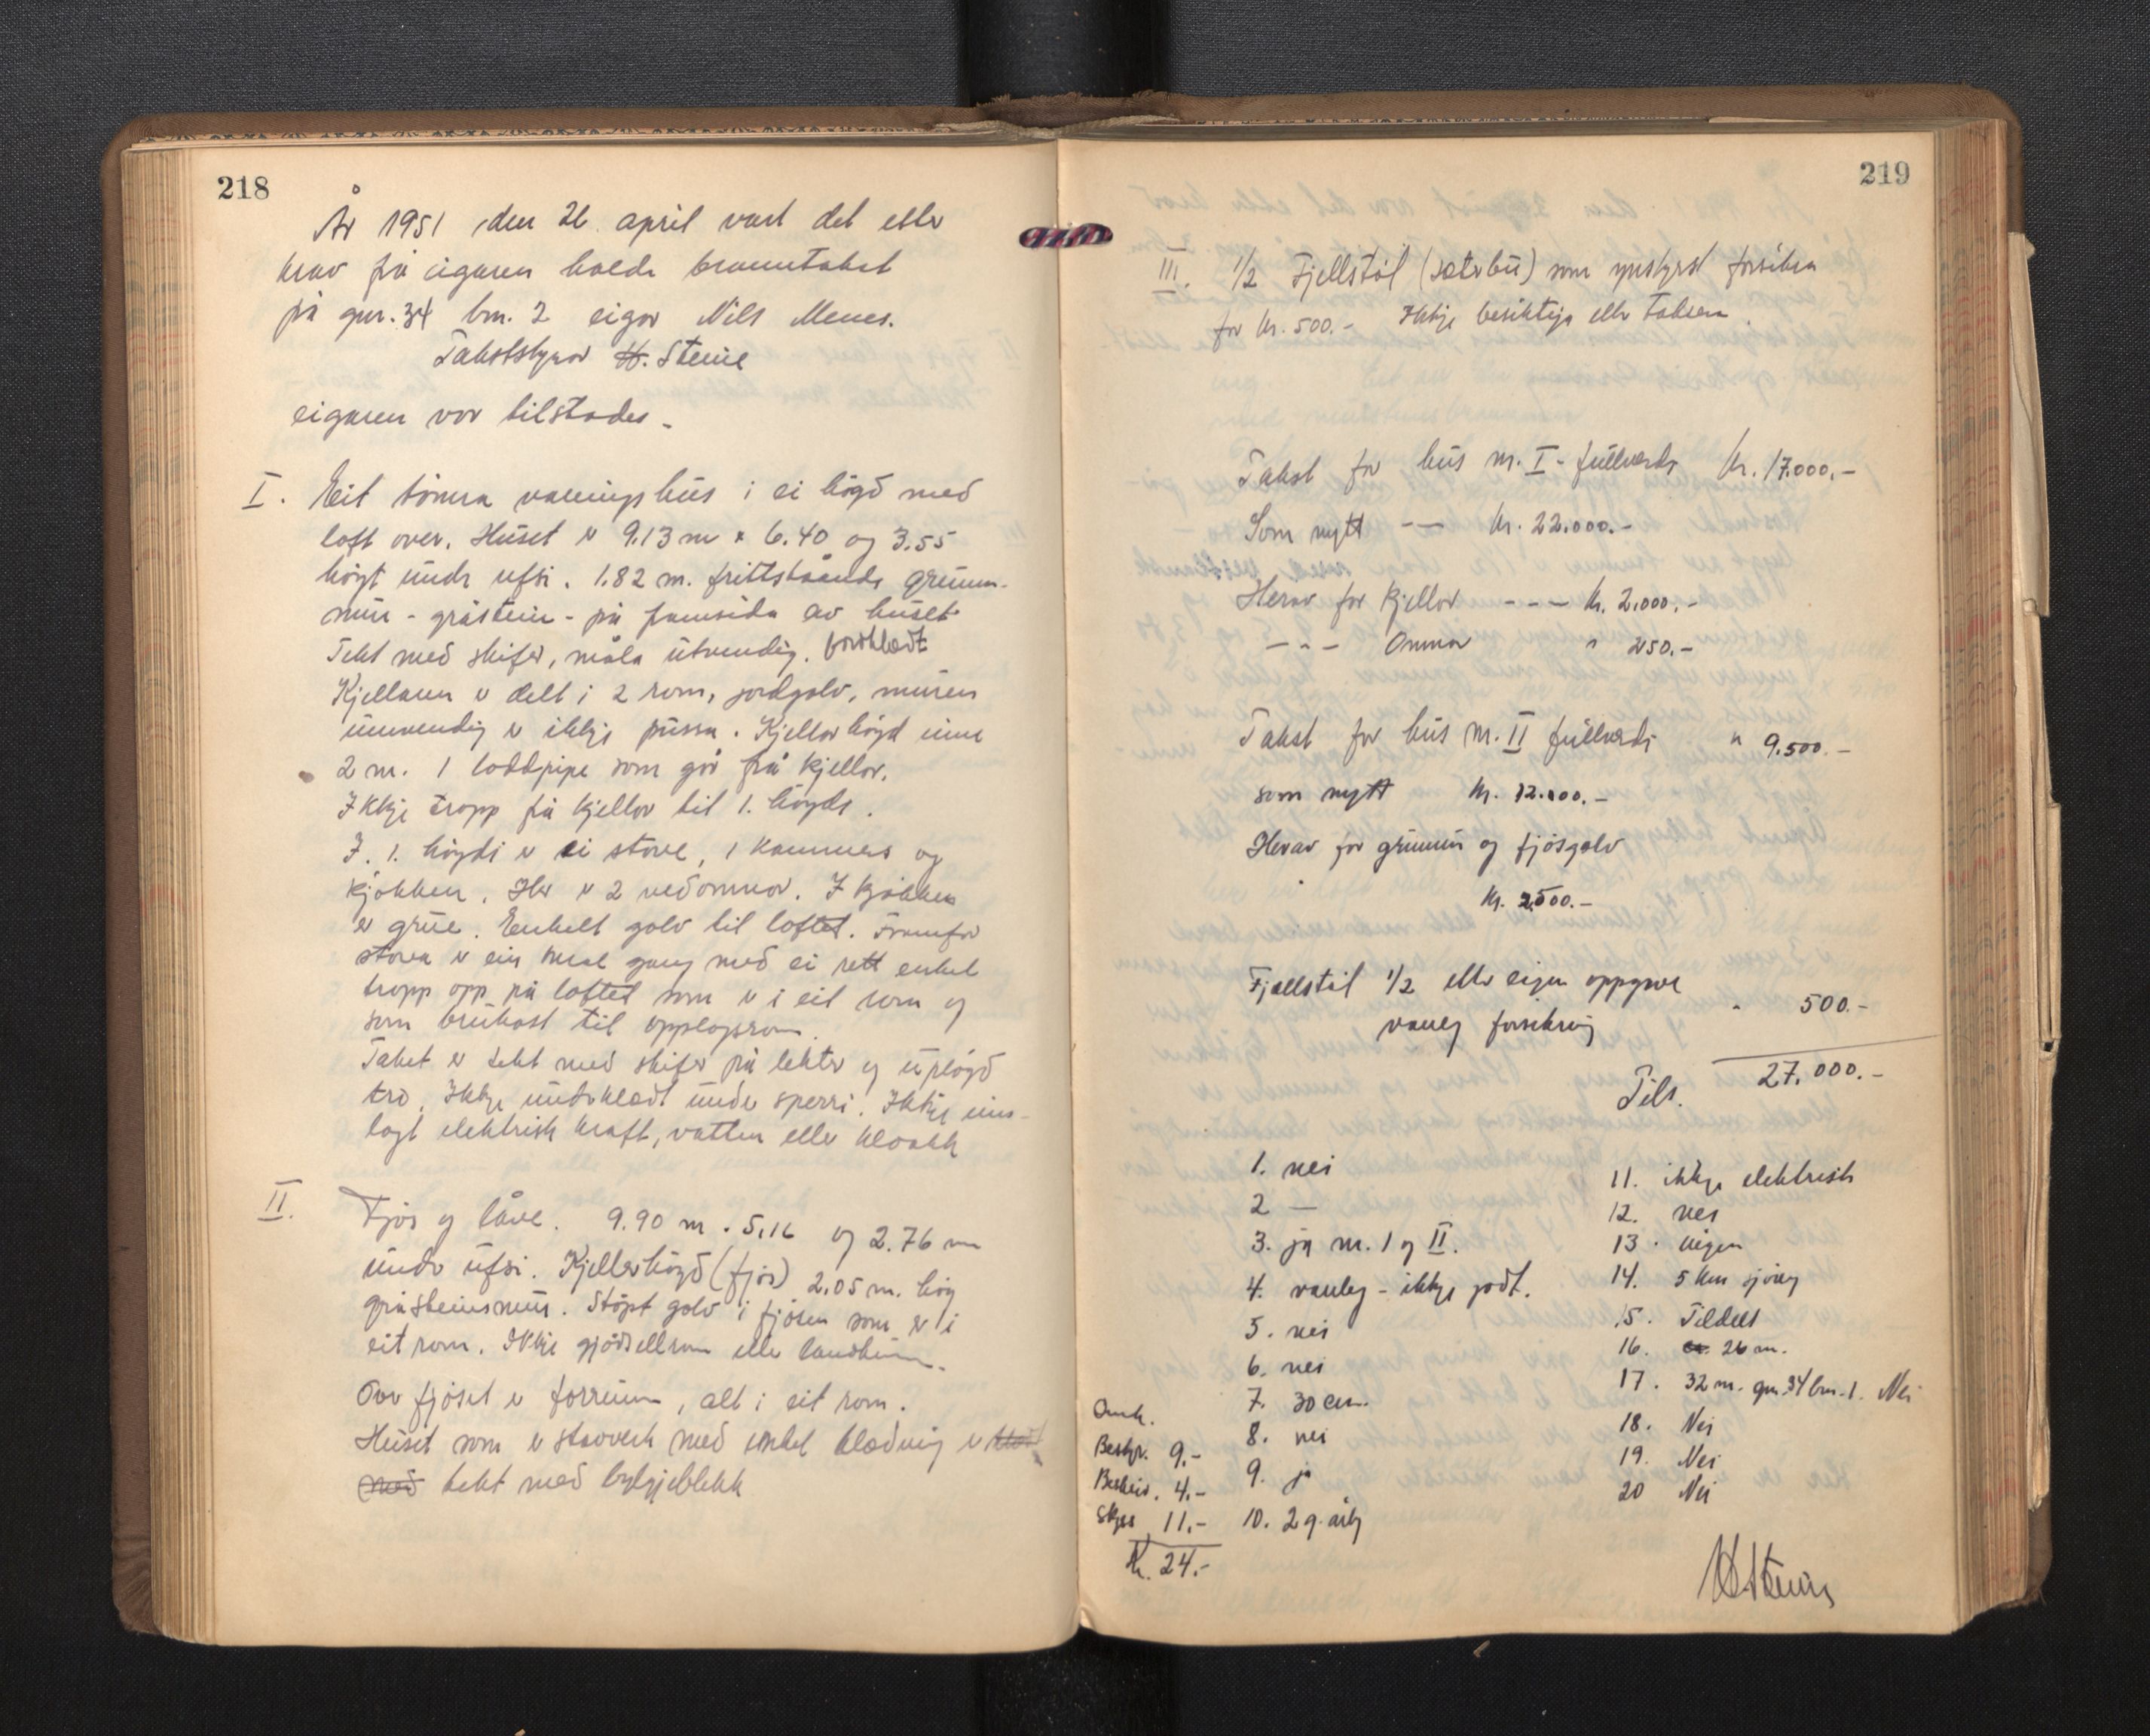 218
År 1951 den 26. april vart det etter
krav frå eigaren halde branntakst
på gnr. 34 bnr. 2 eigar Nils Menes.
Takststyrar H. Steine
eigaren var tilstades.
I. Eit tømra våningshus i ei høgd med
loft over. Huset er 9.13 m x 6.40 og 3.55
høgt under ufsi. 1.82 m. frittståande grunn-
mur - gråstein - på framsida av huset
Tekt med skifer, måla utvendig. bordklædt
Kjellaren er delt i 2 rom, jordgolv, muren
innvendig er ikkje pussa. Kjellarhøgd inne
2 m. 1 loddpipe som går frå kjellar.
Ikkje tropp frå kjellar til 1. høgde.
I. 1. høgdi er ei stove, 1 kammers og
kjøkken. Her er 2 vedomnar. I kjøkken
er grue. Enkelt golv til loftet. Framfor
stova er ein smal gang med ei rett enkel
tropp opp på loftet som er i eit rom og
som brukast til opplagsrom.
Taket er tekt med skifer på lekter og upløgd
tro. Ikkje underklædt under sperri. Ikkje inn-
lagt elektrisk kraft, vatten eller kloakk
II. Fjøs og låve. 9.90 m. 5,16 og 2.76 m
under ufsi. Kjellerhøgd (fjøs) 2.05 m. høg
gråsteinsmur. Støpt golv i fjøsen som er i
eit rom. Ikkje gjødsellrom eller landkum.
Over fjøset er forrum, alt i eit rom.
Huset som er stavverk med enkel klædning er klædt
med tekt med bylgjeblekk
219
III. 1/2 Fjellstøl (sæterbu) som ynskjest forsikra
for kr. 500.- Ikkje besiktiga eller taksera.
Takst for hus nr. I - fullverdi kr. 17.000,-
Som nytt -"- kr. 22.000.-
Herav for kjellar --- kr. 2.000.-
-"- Omnar " 250.-
Takst for hus nr. II fullverdi " 9.500.-
som nytt kr. 12.000.-
Herav for grunnmur og fjøsgolv
kr. 2500.-
Fjellstøl 1/2 etter eigen oppgave
vanleg forsikring " 500.-
Tils. 27.000.-
1. nei
2 —
3. ja nr. I og II.
4. vanleg - ikkje godt.
5. nei
6. nei
7. 30 cm.
8. nei
9. ja
10. 2 g. årleg
11. ikkje elektrisk
12. nei
13. ingen
14. 5 km sjøveg
15. Tildels
16. ca. 26 m.
17. 32 m. gnr. 34 bnr. 1. Nei
18. Nei
19. Nei
20 Nei
Omk.
Bestyr. 9.-
Beskriv. 4.-
Skyss 11.-
Kr. 24.-
H. Steine